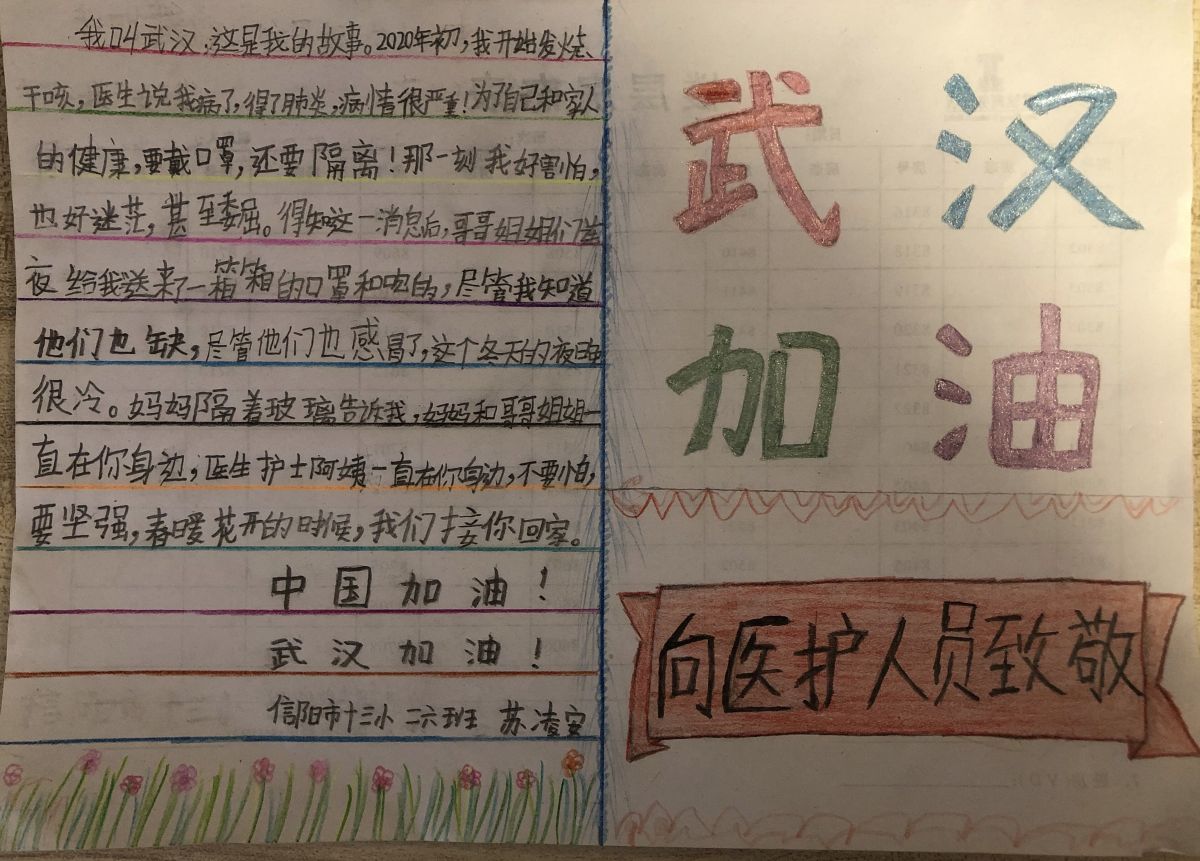 我叫武汉,这是我的故事。2020年初,我开始发烧、
干咳,医生说我病了,得了肺炎,病情很严重!为了自己和家人
的健康,要戴口罩,还要隔离!那一刻我好害怕,
也好迷茫,甚至委屈。得知这一消息后,哥哥姐姐们连
夜给我送来了一箱箱的口罩和吃的,尽管我知道
他们也缺,尽管他们也感冒了,这个冬天的夜晚
很冷。妈妈隔着玻璃告诉我,妈妈和哥哥姐姐一
直在你身边,医生护士阿姨一直在你身边,不要怕,
要坚强,春暖花开的时候,我们接你回家。
中国加油!
武汉加油!
信阳市十三小 二六班 苏凌安
武汉
加油
向医护人员致敬